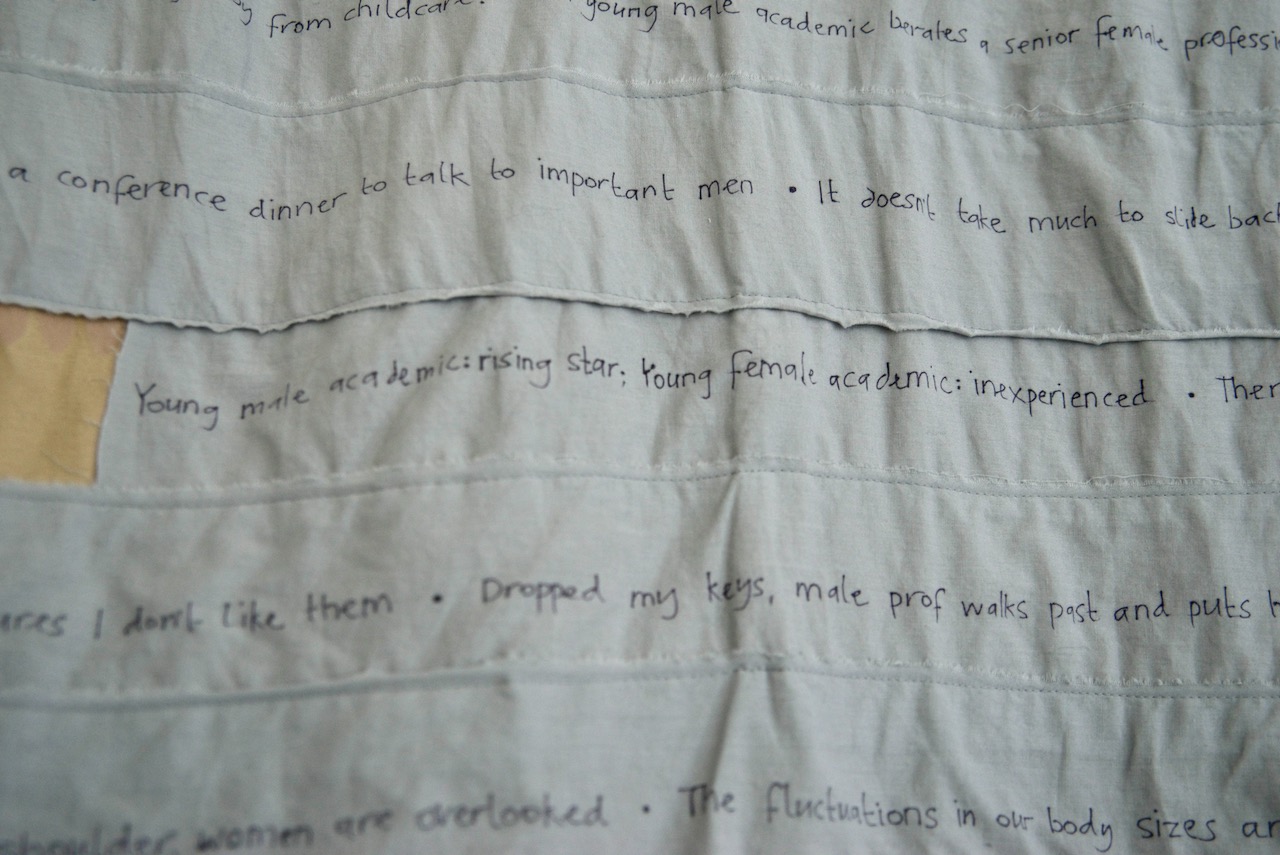 from childcare. young male academic berates a senior female
a conference dinner to talk to important men • It doesn't take much to slide back
Young male academic: rising star; Young female academic: inexperienced •
I don't like them • Dropped my keys, male prof walks past and puts
women are overlooked • The fluctuations in our body sizes